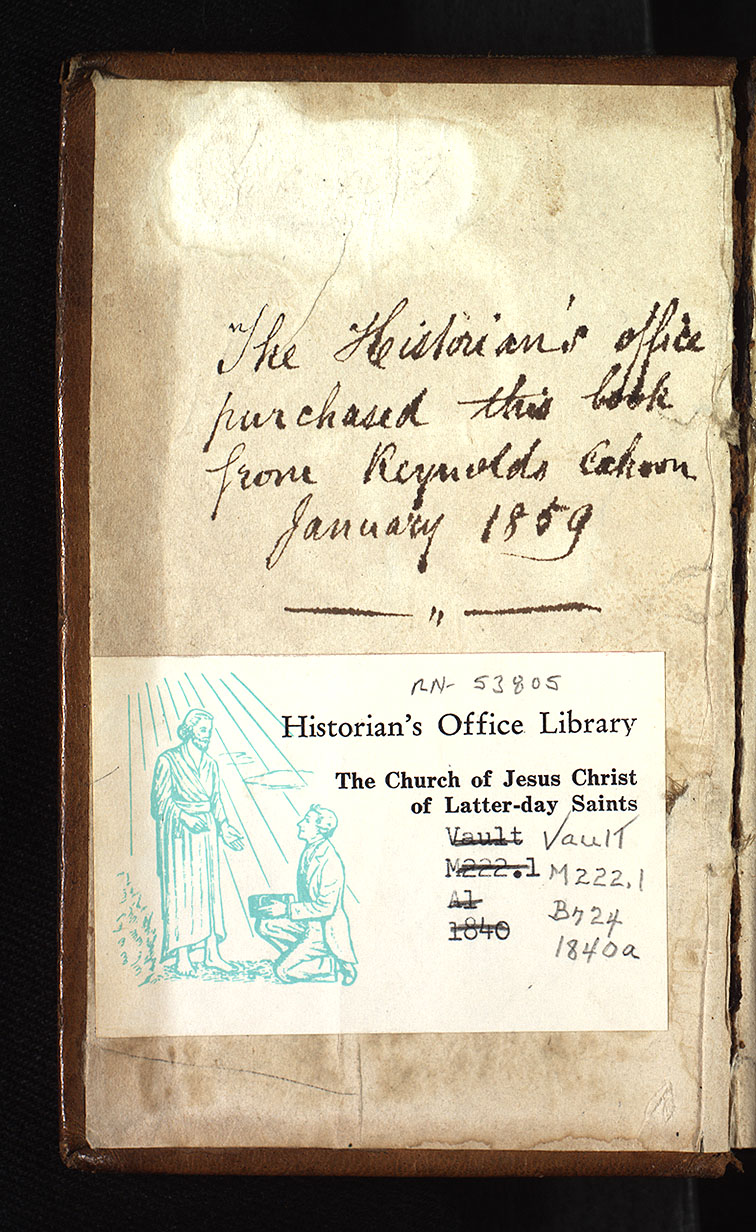 The Historian's office
purchased this book
from Reynolds Cahoon
January 1859
"
RN- 53805
Historian's Office Library
The Church of Jesus Christ
of Latter-day Saints
Vault Vault
M222.1 M222.1
A1 B724
1840 1840a